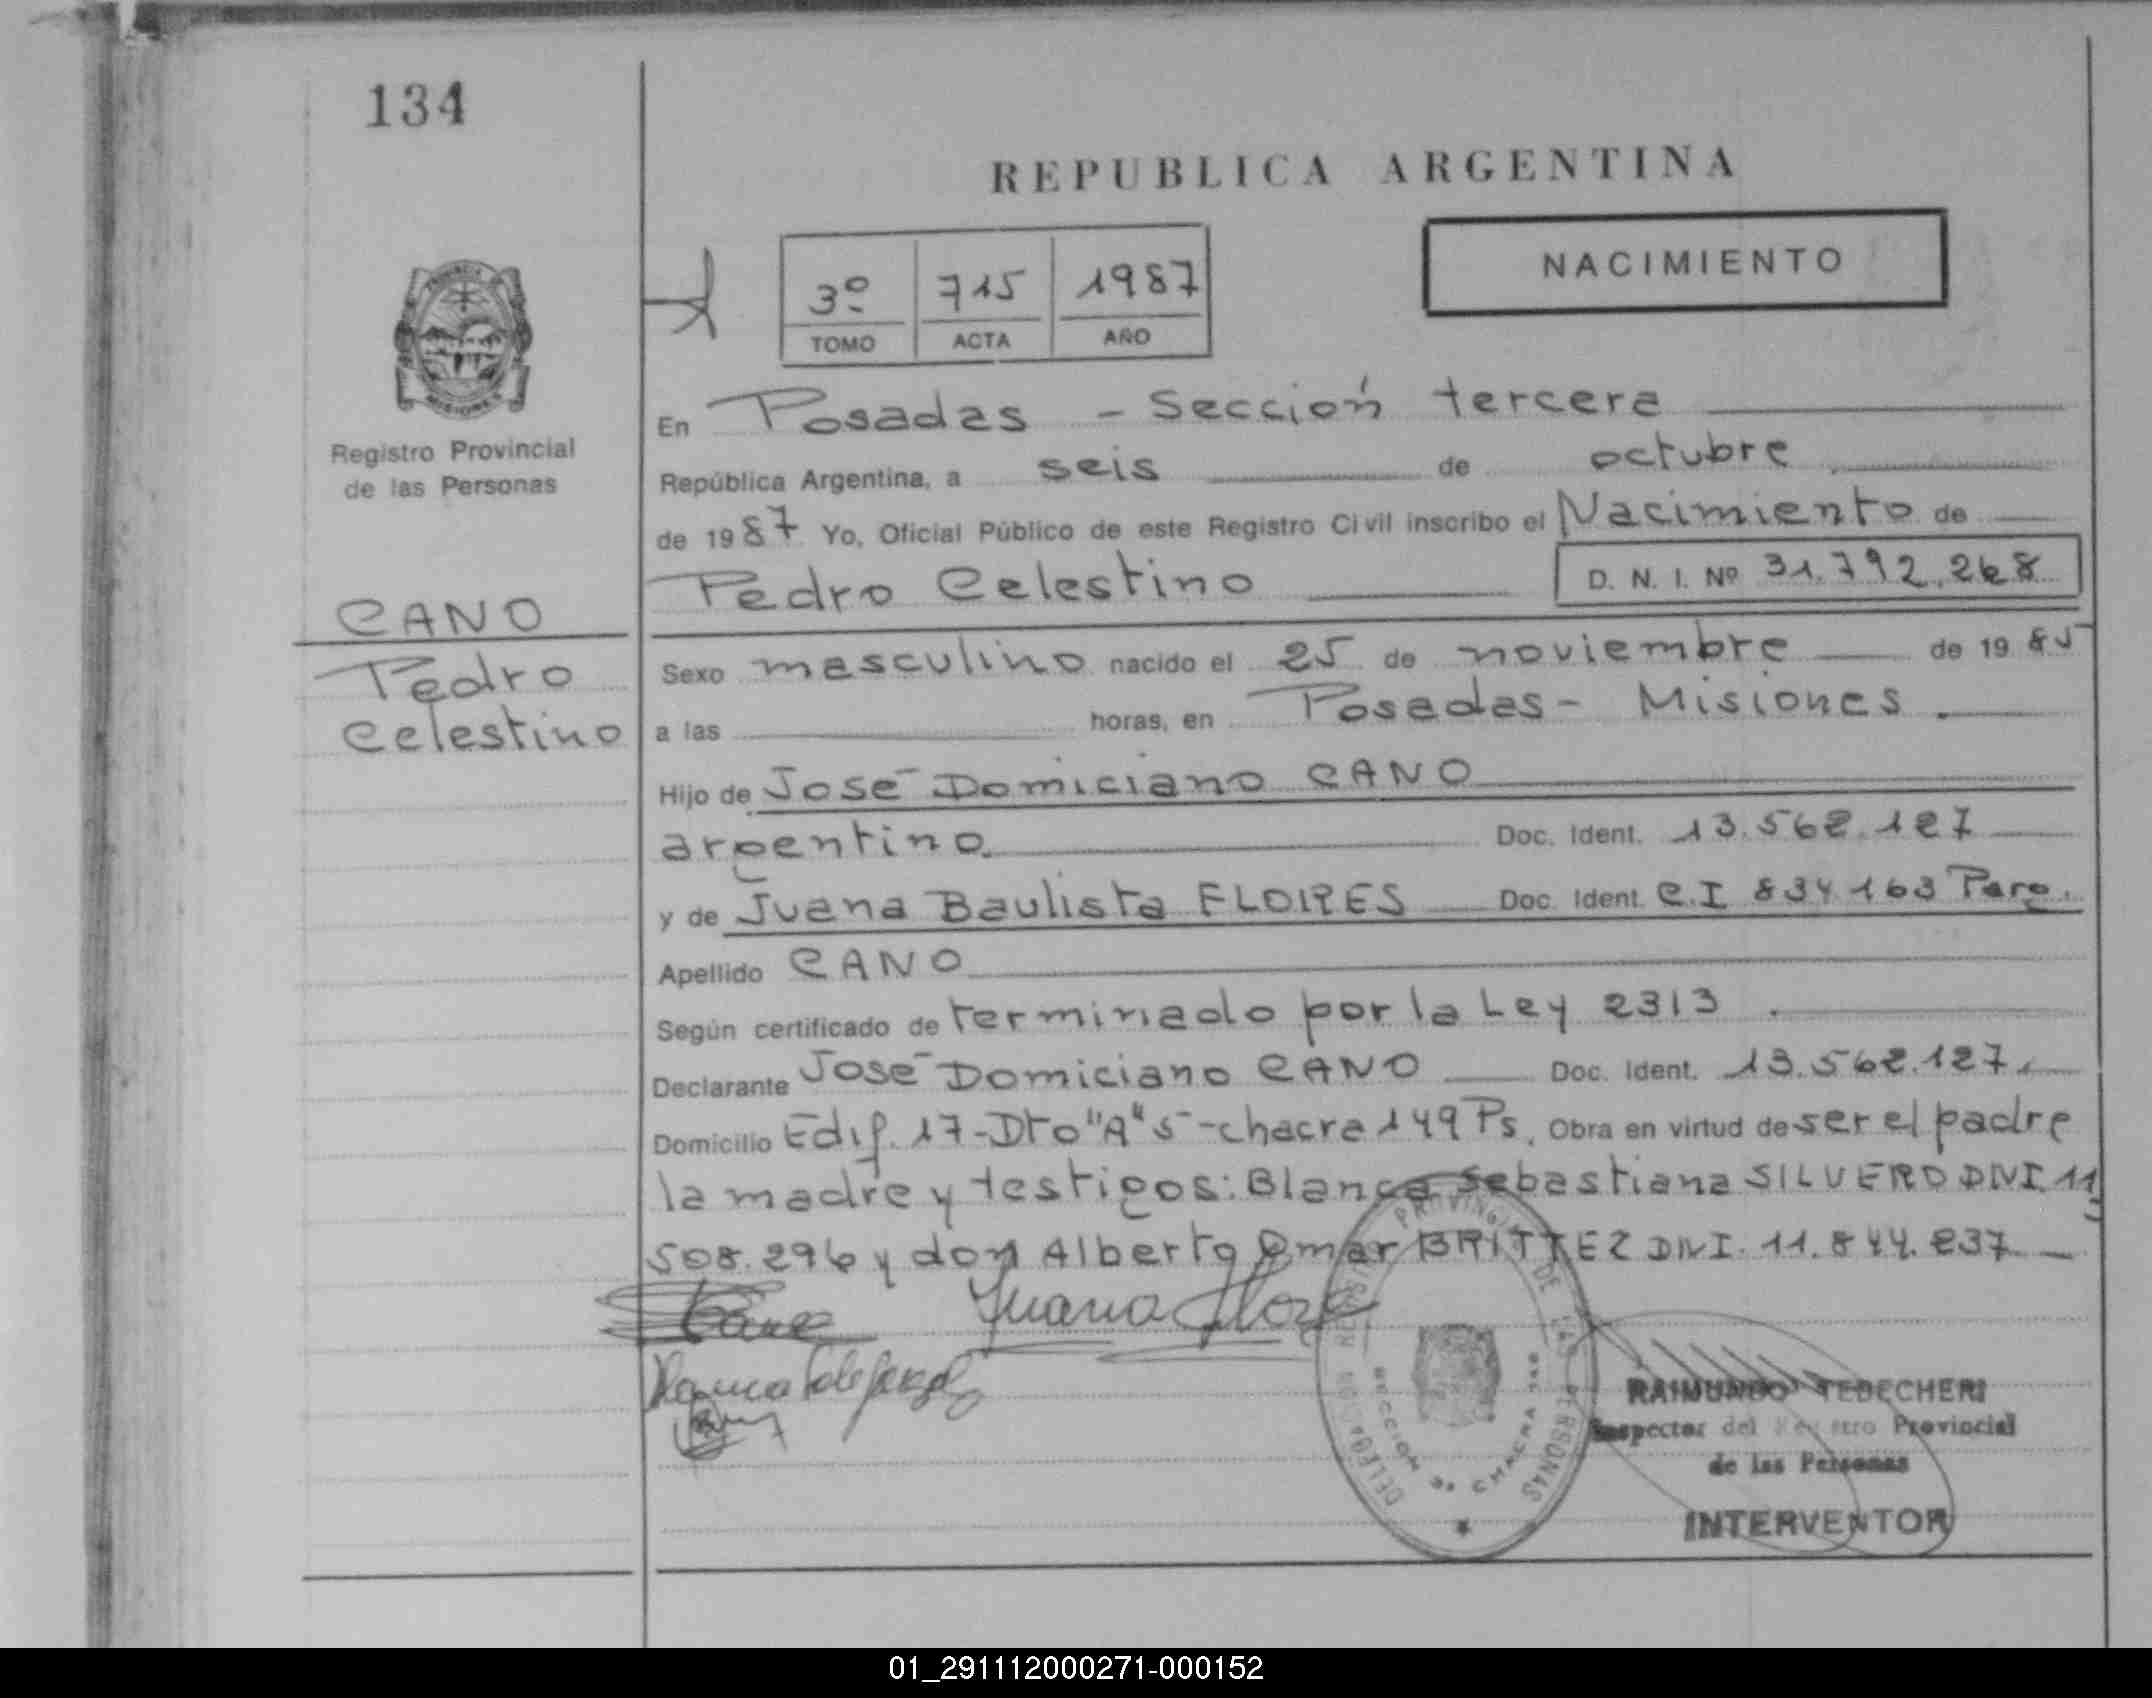 134
REPUBLICA ARGENTINA
NACIMIENTO
3º 715 1987
TOMO ACTA AÑO
MISIONES
Registro Provincial
de las Personas
En Posadas - Sección tercera
República Argentina, a seis de octubre
de 1987 Yo, Oficial Público de este Registro Civil inscribo el Nacimiento de
Pedro Celestino D. N. I. Nº 31.792.268
CANO
Pedro
Celestino
Sexo masculino nacido el 25 de noviembre de 1985
a las horas, en Posadas - Misiones.
Hijo de José Domiciano CANO
argentino. Doc. Ident. 13.562.127
y de Juana Baulista FLORES Doc. Ident. C.I 834.163 Parg.
Apellido CANO
Según certificado de terminado por la Ley 2313.
Declarante José Domiciano CANO Doc. Ident. 13.562.127.
Domicilio Edif. 17-Dto "A" 5-chacra 149 Ps. Obra en virtud de ser el padre
la madre y testigos: Blanca Sebastiana SILVERO DNI. 11
508.296 y don Alberto Omar BRITTEZ DNI. 11.844.237
Juana Flores
PROVINCIAL DE LAS PERSONAS
SECCION 3a CHACRA 149
RAIMUNDO TEDECHERI
Inspector del Registro Provincial
de las Personas
INTERVENTOR
01_291112000271-000152